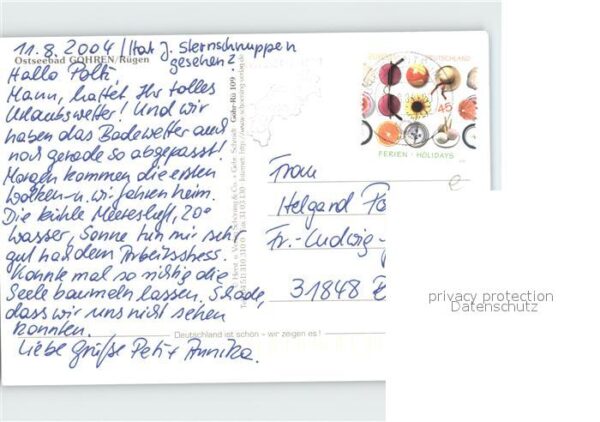 11.8.2004 / Hat J. Sternschnuppen
gesehen?
Ostseebad GÖHREN/Rügen
Hallo Polti,
Mann, hattet Ihr tolles
Urlaubswetter! Und wir
haben das Badewetter auch
noch gerade so abgepasst!
Morgen kommen die ersten
Wolken u. wir fahren heim.
Die kühle Meeresluft, 20°
Wasser, Sonne tun mir sehr
gut nach dem Arbeitsstress.
Konnte mal so richtig die
Seele baumeln lassen. Schade,
dass wir uns nicht sehen
konnten.
Deutschland ist schön - wir zeigen es!
Liebe Grüße Peti + Annika.
Gebr. Schmidt · Göhr-Rü 109
DEUTSCHLAND
45
FERIEN · HOLIDAYS
Frau
Helgard
Fr.-Ludwig-
31848
privacy protection
Datenschutz